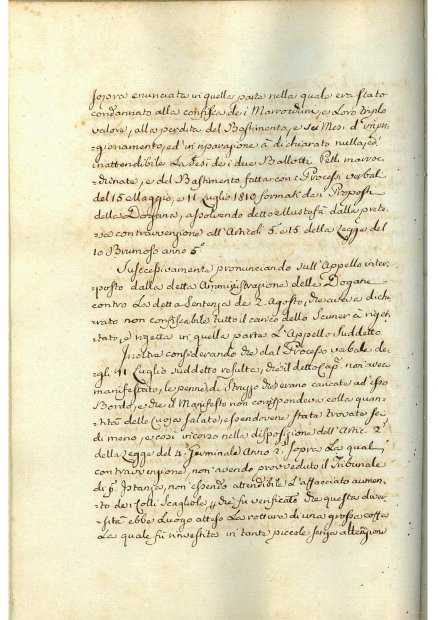 sopra enunciata in quella parte nella quale era stato
condannato alla confisca dei Marrocchini, e Loro triplo
valore, alla perdita del Bastimento, e sei Mesi d'inpri-
gionamento, ed in riparazione à dichiarato nulla, ed
inattendibile La Tesi dei due Ballotti Pelli marroc-
chinate, e del Bastimento fatta con i Processi verbal
del 15 Maggio, e 11 Luglio 1810 formati dai Preposti
della Dogana, assolvendo detto Mustafà dalla prete-
sa contravvenzione all'Articoli 5. e 15 della Legge del
10 Brumoso anno 5º
Successivamente pronunciando sull'Appello inter-
posto dalla detta Amministrazione delle Dogane
contro La detta Sentenza de 2. Agosto, che aveva dichia-
rato non confiscabile tutto il carico dello Scuner à riget-
tato, e rigetta in quella parte L'Appello Suddetto.
Inoltre considerando che dal Processo verbale de-
gli 11 Luglio suddetto resulta, che il detto Cap.º non avea
manifestato, le penne di Struzzo che erano caricate ad esso
Bordo, e che il Manifesto non corrispondeva colla quan-
tità delle Cuoja salate, essendovene stata trovate sei
di meno, e così incorso nella disposizione dell'Artic. 2º
della Legge del 4. Germinale Anno 2. sopra La qual
contravvenzione, non avendo provveduto il Tribunale
di p.ª Istanza, non essendo attendibile L'affacciato aumen-
to dei Colli Scagliole, che fu verificato che questa diver-
sità ebbe Luogo atteso La rottura di una grossa cassa
La quale fù investita in tante piccole senza alterazione